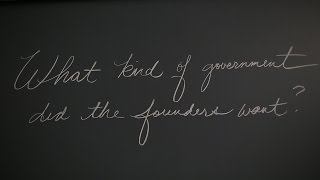 What kind of government
did the founders want?